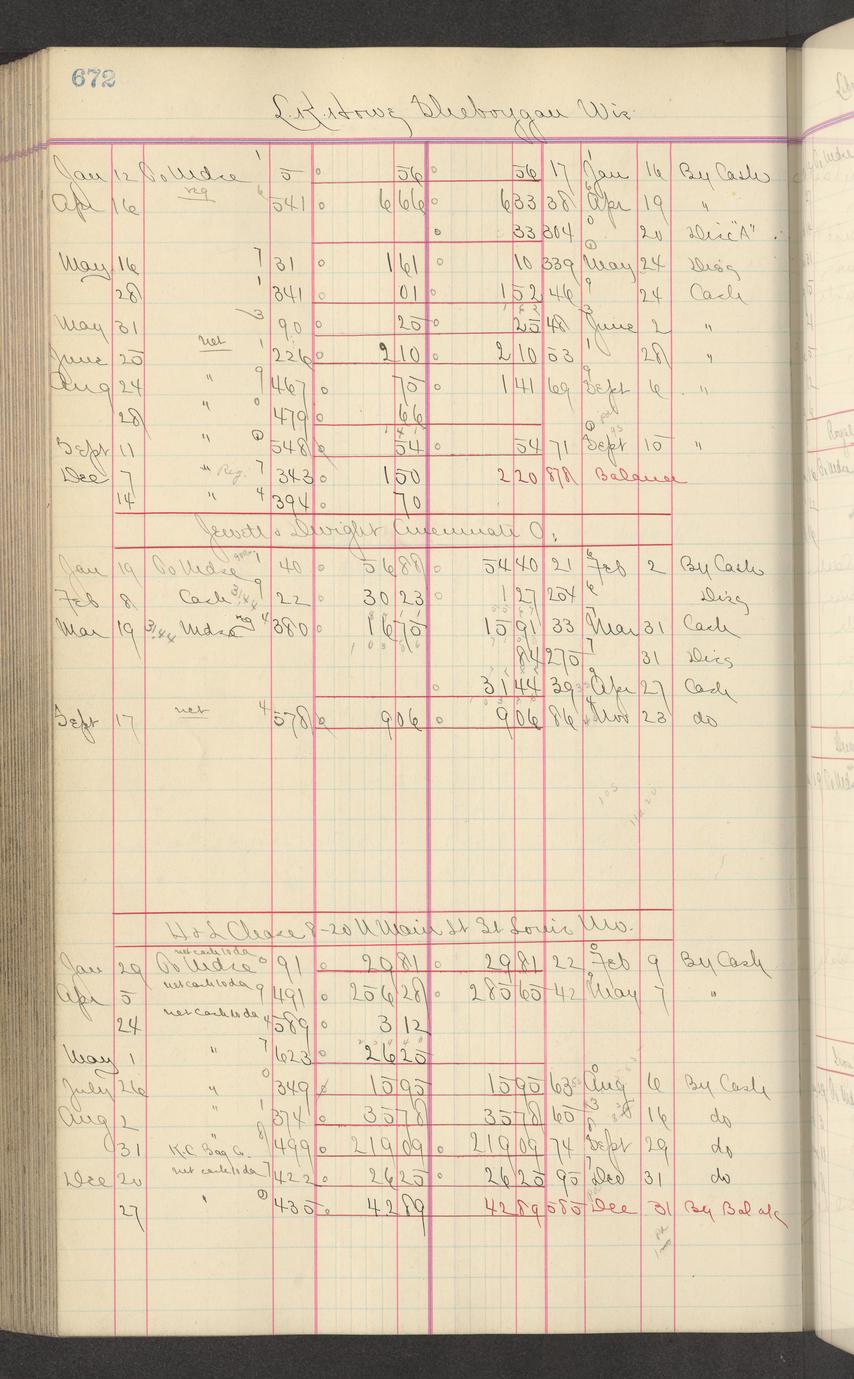 672
L.K. Howe Sheboygan Wis
Jan 12 To Mdse 1 5 56 56 17 Jan 16 By Cash
Apr 16 reg 6 541 6 66 6 33 38 Apr 19 "
33 304 20 Disc "A"
May 16 7 31 1 61 10 339 May 24 Disc
28 1 341 01 1 52 46 24 Cash
May 31 3 90 25 25 48 June 2 "
June 25 net 1 226 2 10 2 10 53 28 "
Aug 24 " 9 467 75 1 41 69 Sept 6 "
28 " 0 479 66
Sept 11 " 548 54 54 71 Sept 15 "
Dec 7 " Reg. 7 343 1 50 2 20 878 Balance
14 " 4 394 70
Jewett & Dwight Cincinnati O.
Jan 19 To Mdse 1 40 56 88 54 40 21 Feb 2 By Cash
Feb 8 Cash 3/44 9 22 30 23 1 27 254 Disc
Mar 19 3/44 Mdse reg 4 380 16 75 15 91 33 Mar 31 Cash
84 275 31 Disc
31 44 39 Apr 27 Cash
Sept 17 net 4 578 9 06 9 06 86 Nov 23 do
H & L Chase 8-20 N Main St St Louis Mo.
Jan 29 net cash 10 da To Mdse 0 91 29 81 29 81 22 Feb 9 By Cash
Apr 5 net cash 10 da 9 491 256 28 285 65 42 May 7 "
24 net cash 10 da 4 589 3 12
May 1 " 7 623 26 25
July 26 " 0 349 15 95 15 95 63 Aug 6 By Cash
Aug 2 " 1 374 35 78 35 78 65 16 do
31 K.C. Bag Co. 8 499 219 09 219 09 74 Sept 29 do
Dec 20 net cash 10 da 7 422 26 25 26 25 95 Dec 31 do
27 " 435 42 89 42 89 585 Dec 31 By Bal